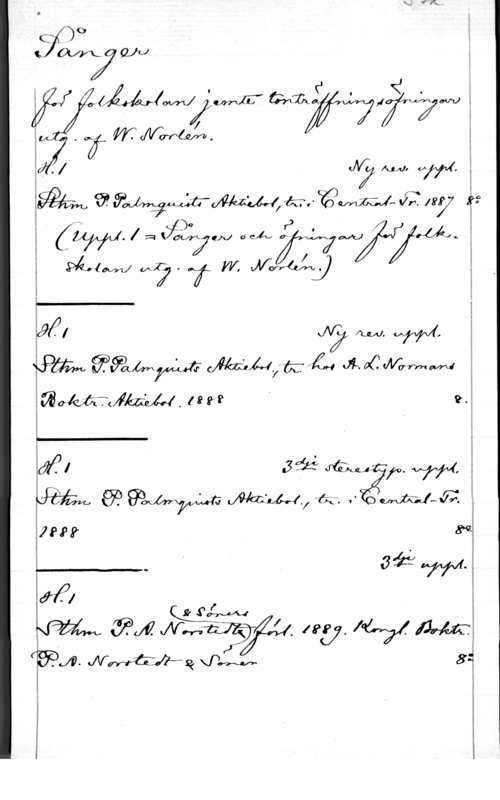 Sånger
för folkskolan jemte tonträffningsöfningar
utg. af W. Norlén.
H. 1 Ny rev. uppl.
Sthm P. Palmquists Aktiebol., tr. i Central-Tr. 1887 8:o
(Uppl. 1 = Sånger och öfningar för folk-
skolan utg. af W. Norlén.)
H. 1 Ny rev. uppl.
Sthm P. Palmquists Aktiebol., tr. hos A. L. Normans
Boktr. Aktiebol. 1888 8.
H. 1 3dje stereotyp. uppl.
Sthm P. Palmquists Aktiebol., tr. i Central-Tr.
1888 8:o
3dje uppl.
H. 1
(& Söners
Sthm P. A. Norstedts) förl. 1889. Kongl. Boktr.
P. A. Norstedt & Söner 8:o